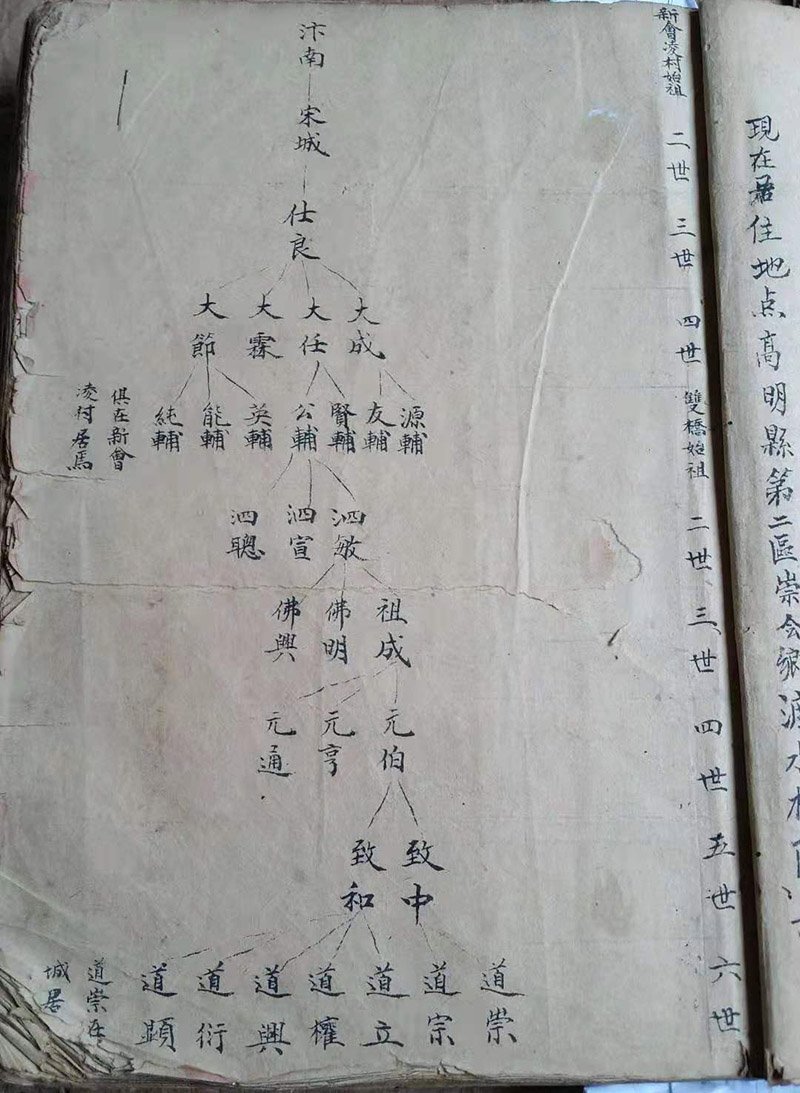 現在居住地点高明縣第二區崇令鄉
新會凌村始祖
二世
三世
四世
雙橋始祖
二世
三世
四世
五世
六世
汴南
宋城
仕良
大成
大任
大霖
大節
源輔
友輔
賢輔
公輔
英輔
能輔
純輔
俱在新會
凌村居焉
泗敏
泗宣
泗聰
祖成
佛明
佛興
元伯
元亨
元通
致中
致和
道崇
道宗
道立
道權
道興
道衍
道顕
道崇在
城居